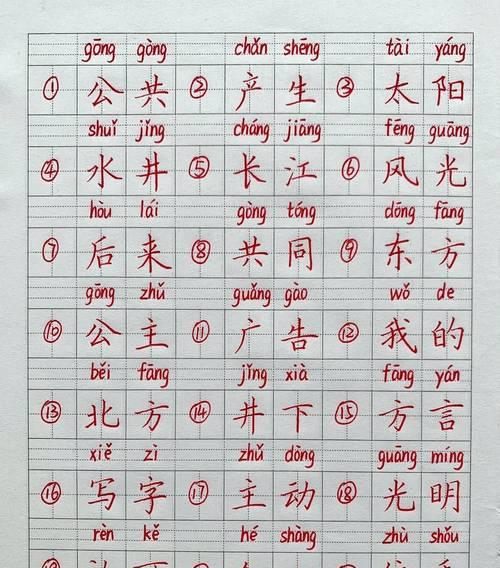 gōng gòng chǎn shēng tài yáng
① 公共 ② 产生 ③ 太阳
shuǐ jǐng cháng jiāng fēng guāng
④ 水井 ⑤ 长江 ⑥ 风光
hòu lái gòng tóng dōng fāng
⑦ 后来 ⑧ 共同 ⑨ 东方
gōng zhǔ guǎng gào wǒ de
⑩ 公主 ⑪ 广告 ⑫ 我的
běi fāng jǐng xià fāng yán
⑬ 北方 ⑭ 井下 ⑮ 方言
xiě zì zhǔ dòng guāng míng
⑯ 写字 ⑰ 主动 ⑱ 光明
rèn kě hé shàng zhù shǒu